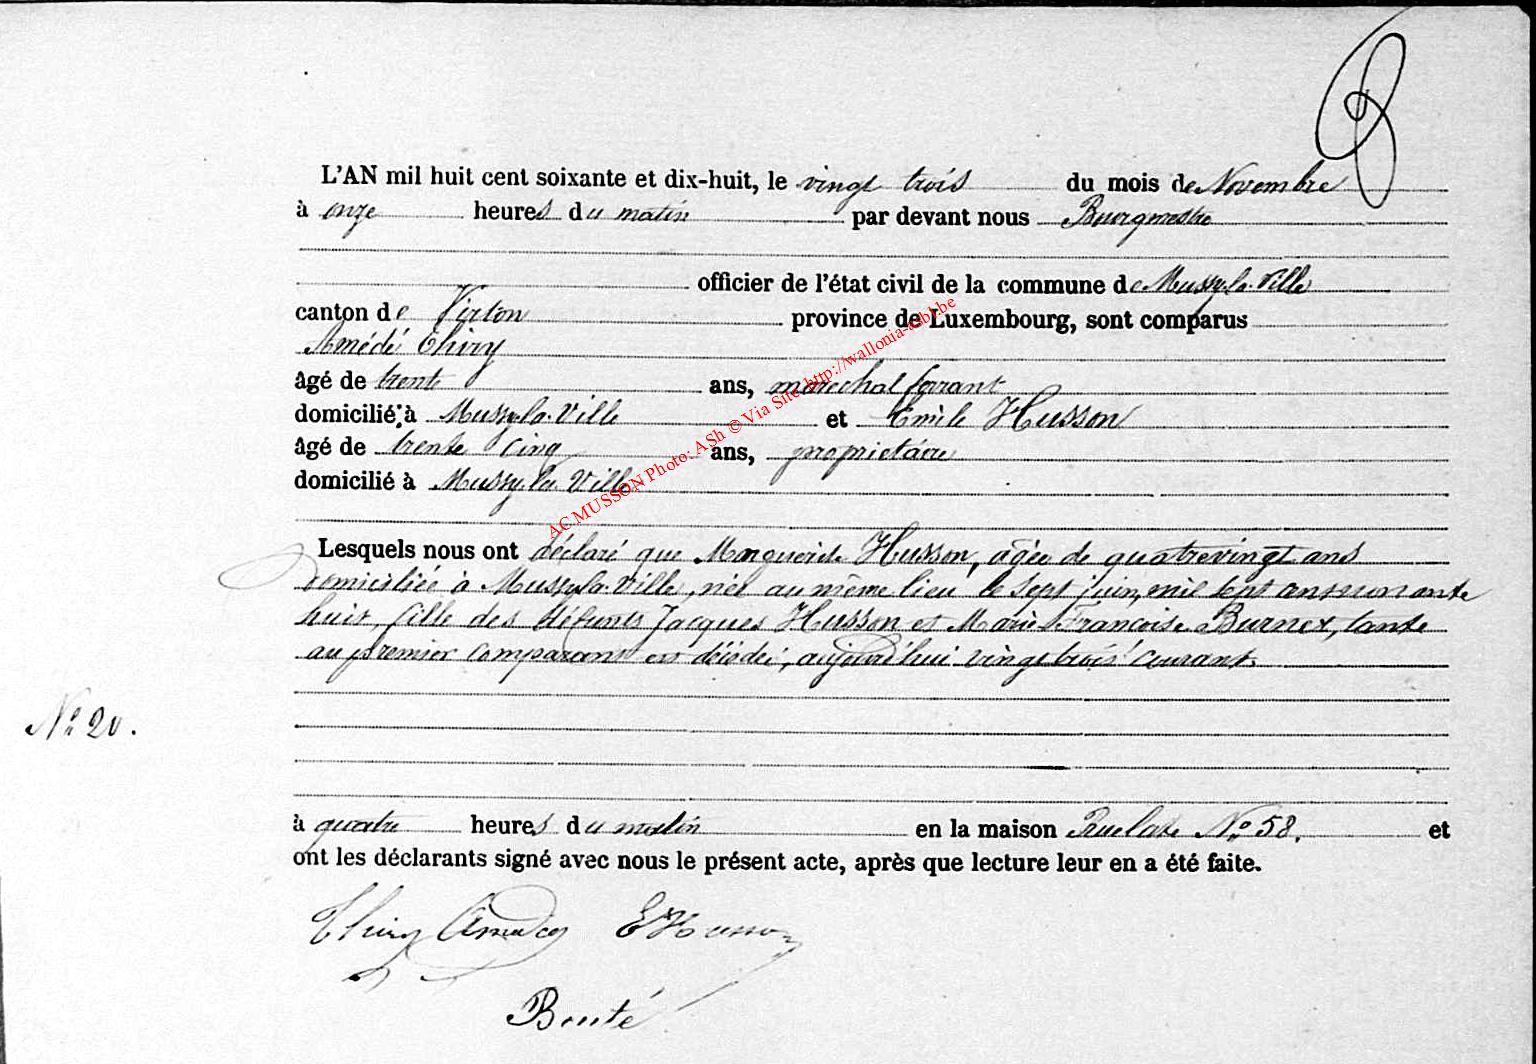 L'AN mil huit cent soixante et dix-huit, le vingt trois du mois de Novembre
à onze heures du matin par devant nous Bourgmestre
officier de l'état civil de la commune de Mussy-la-Ville
canton de Virton province de Luxembourg, sont comparus
Amédé Thiry
âgé de trente ans, maréchal ferrant
domicilié à Mussy-la-Ville et Emile Husson
âgé de trente cinq ans, proprietaire
domicilié à Mussy-la-Ville
AC MUSSON Photo: ASh © Via Site: http://wallonia-asbl.be
Lesquels nous ont déclaré que Marguerite Husson, âgée de quatrevingt ans
domiciliée à Mussy-la-Ville, née au même lieu le sept juin, mil sept cent nonante
huit, fille des défunts Jacques Husson et Marie Françoise Burnet, tante
au premier comparant est décédée, aujourd'hui vingt trois courant
N° 20.
à quatre heures du matin en la maison N° 58. et
ont les déclarants signé avec nous le présent acte, après que lecture leur en a été faite.
Thiry Amedée E Husson
Bouté